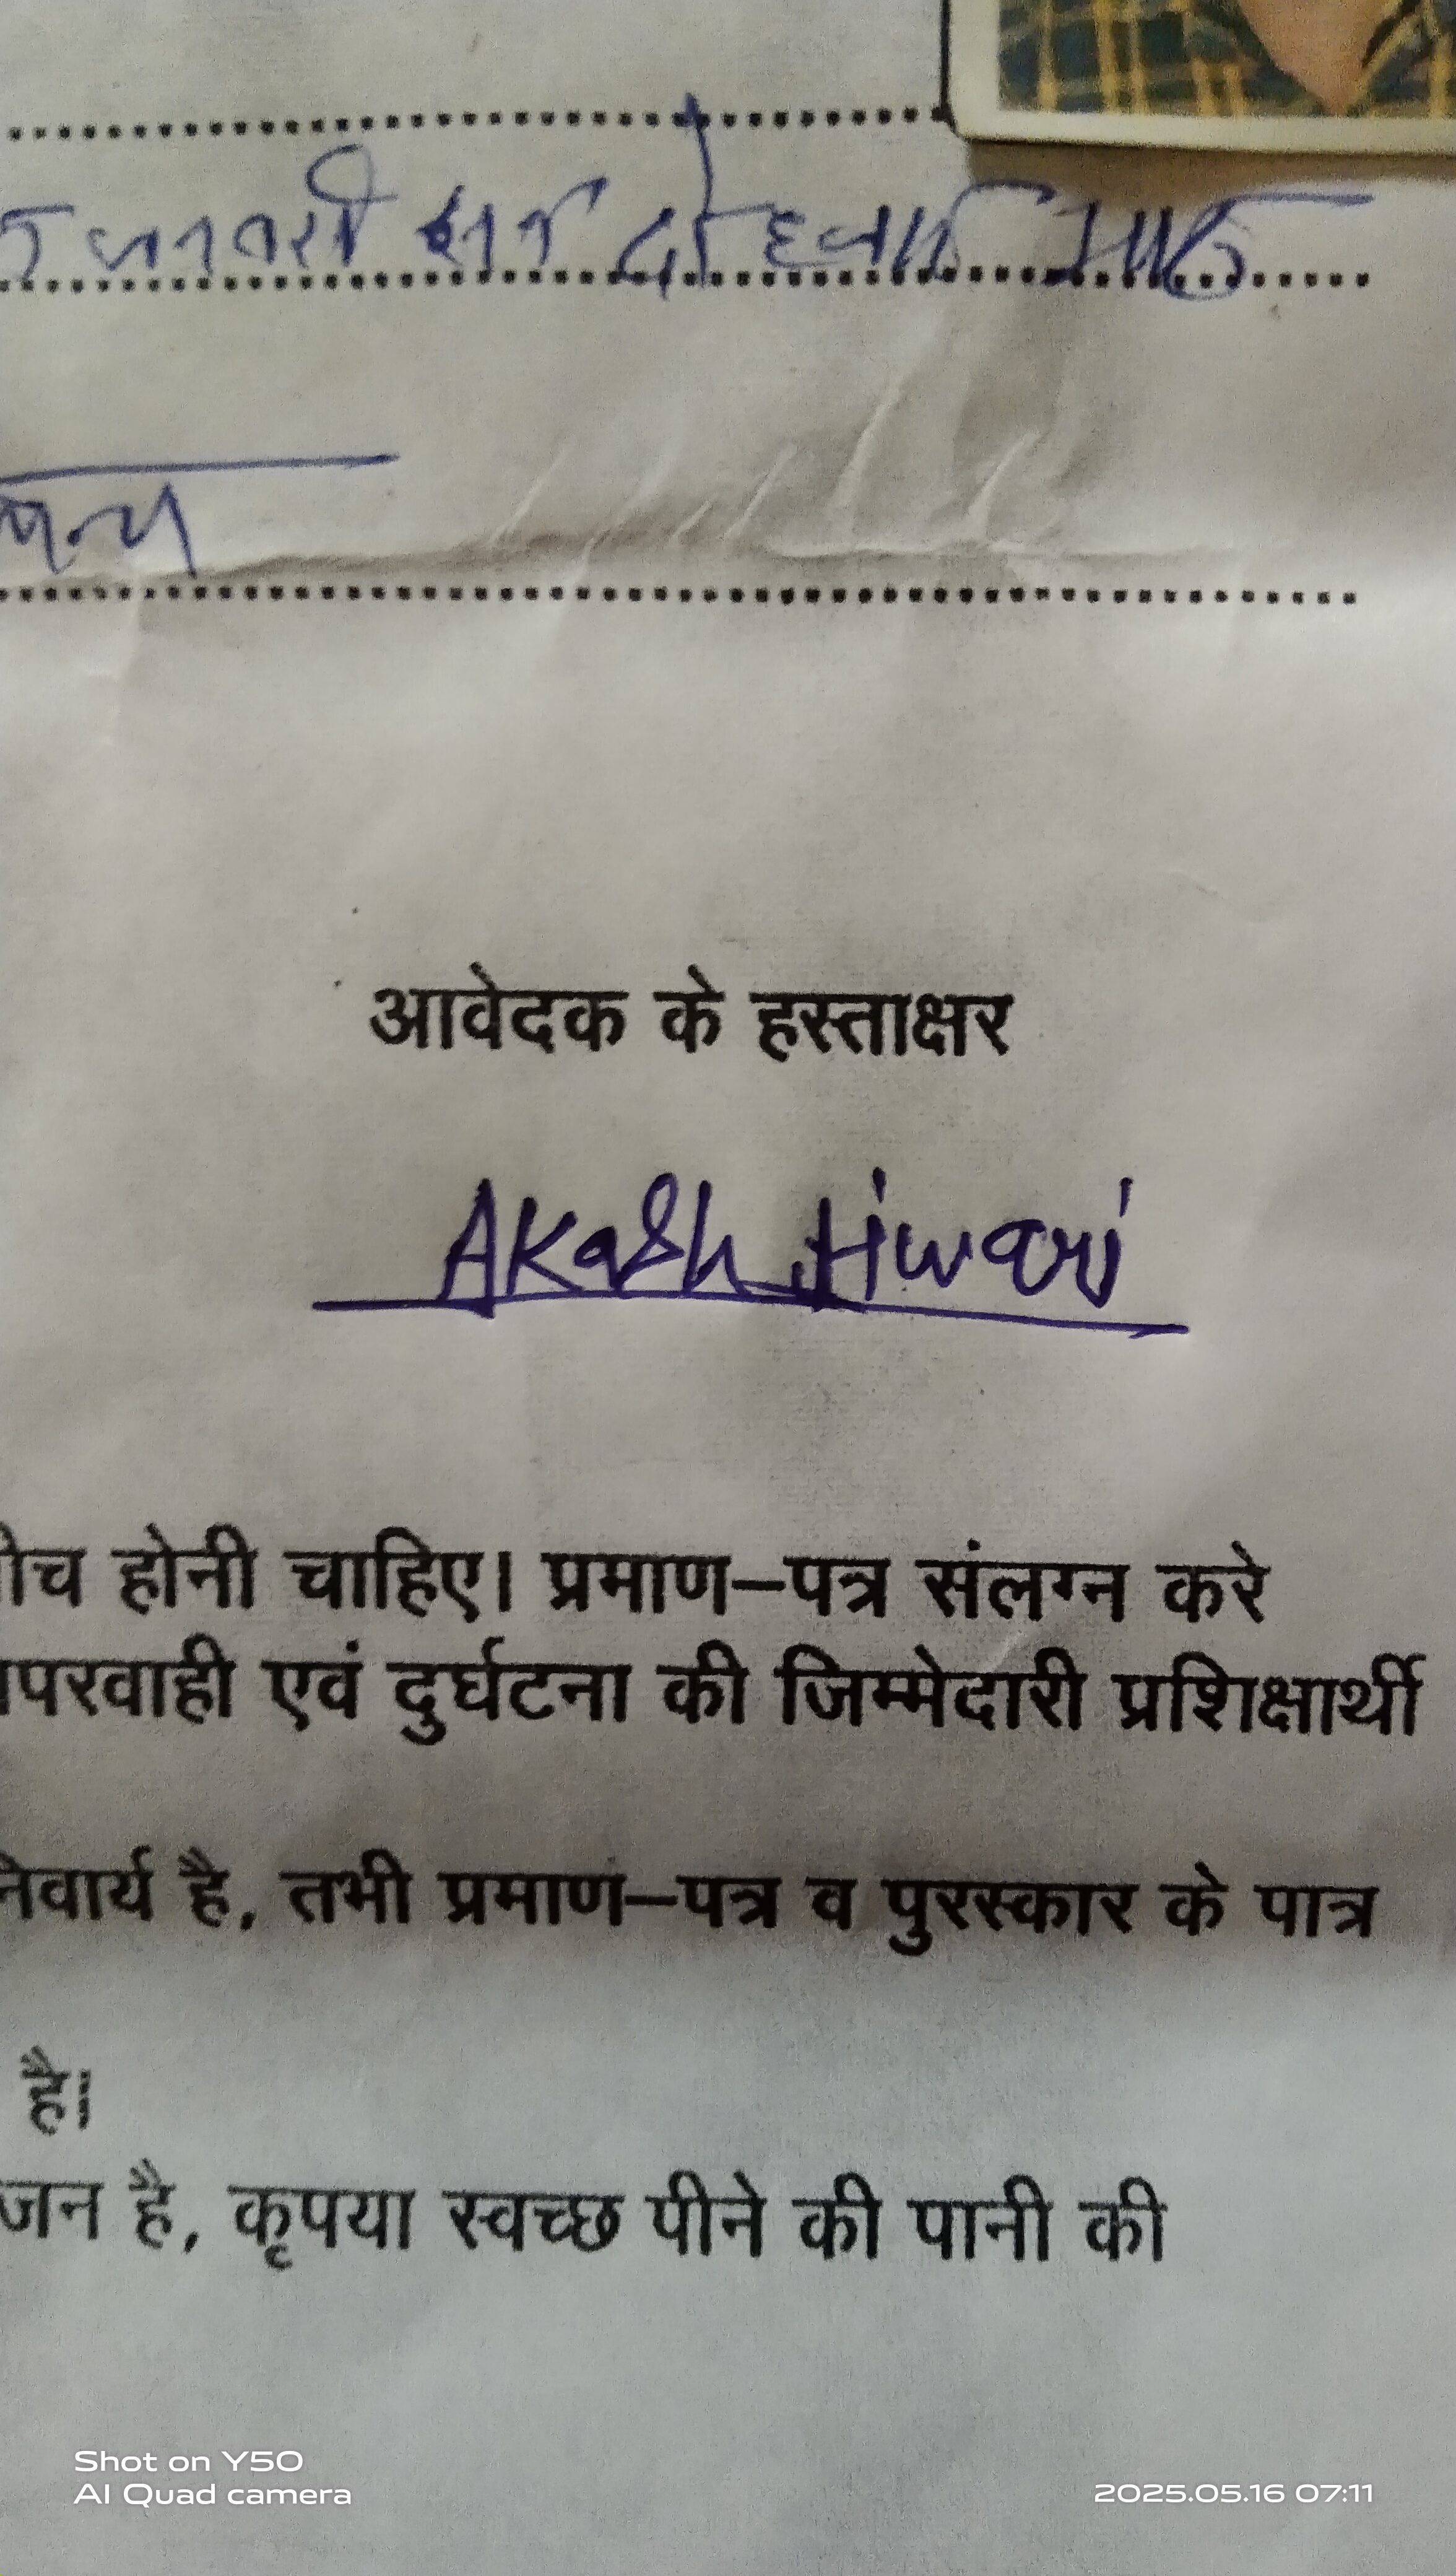 जनवरी सन दो हजार आठ
आवेदक के हस्ताक्षर
Akash tiwari
ीच होनी चाहिए। प्रमाण–पत्र संलग्न करे
ापरवाही एवं दुर्घटना की जिम्मेदारी प्रशिक्षार्थी
निवार्य है, तभी प्रमाण–पत्र व पुरस्कार के पात्र
है।
जन है, कृपया स्वच्छ पीने की पानी की
Shot on Y50
AI Quad camera
2025.05.16 07:11